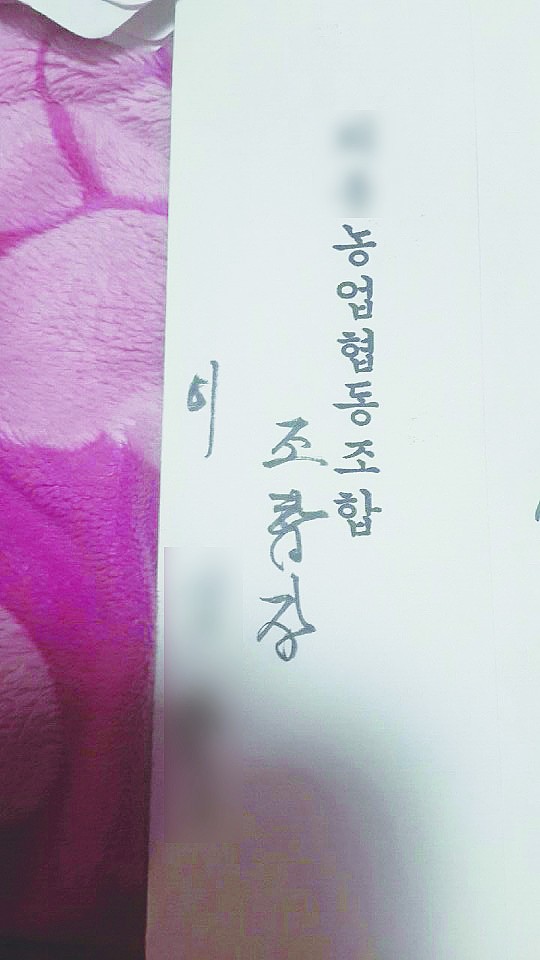 농업협동조합
조합장
이